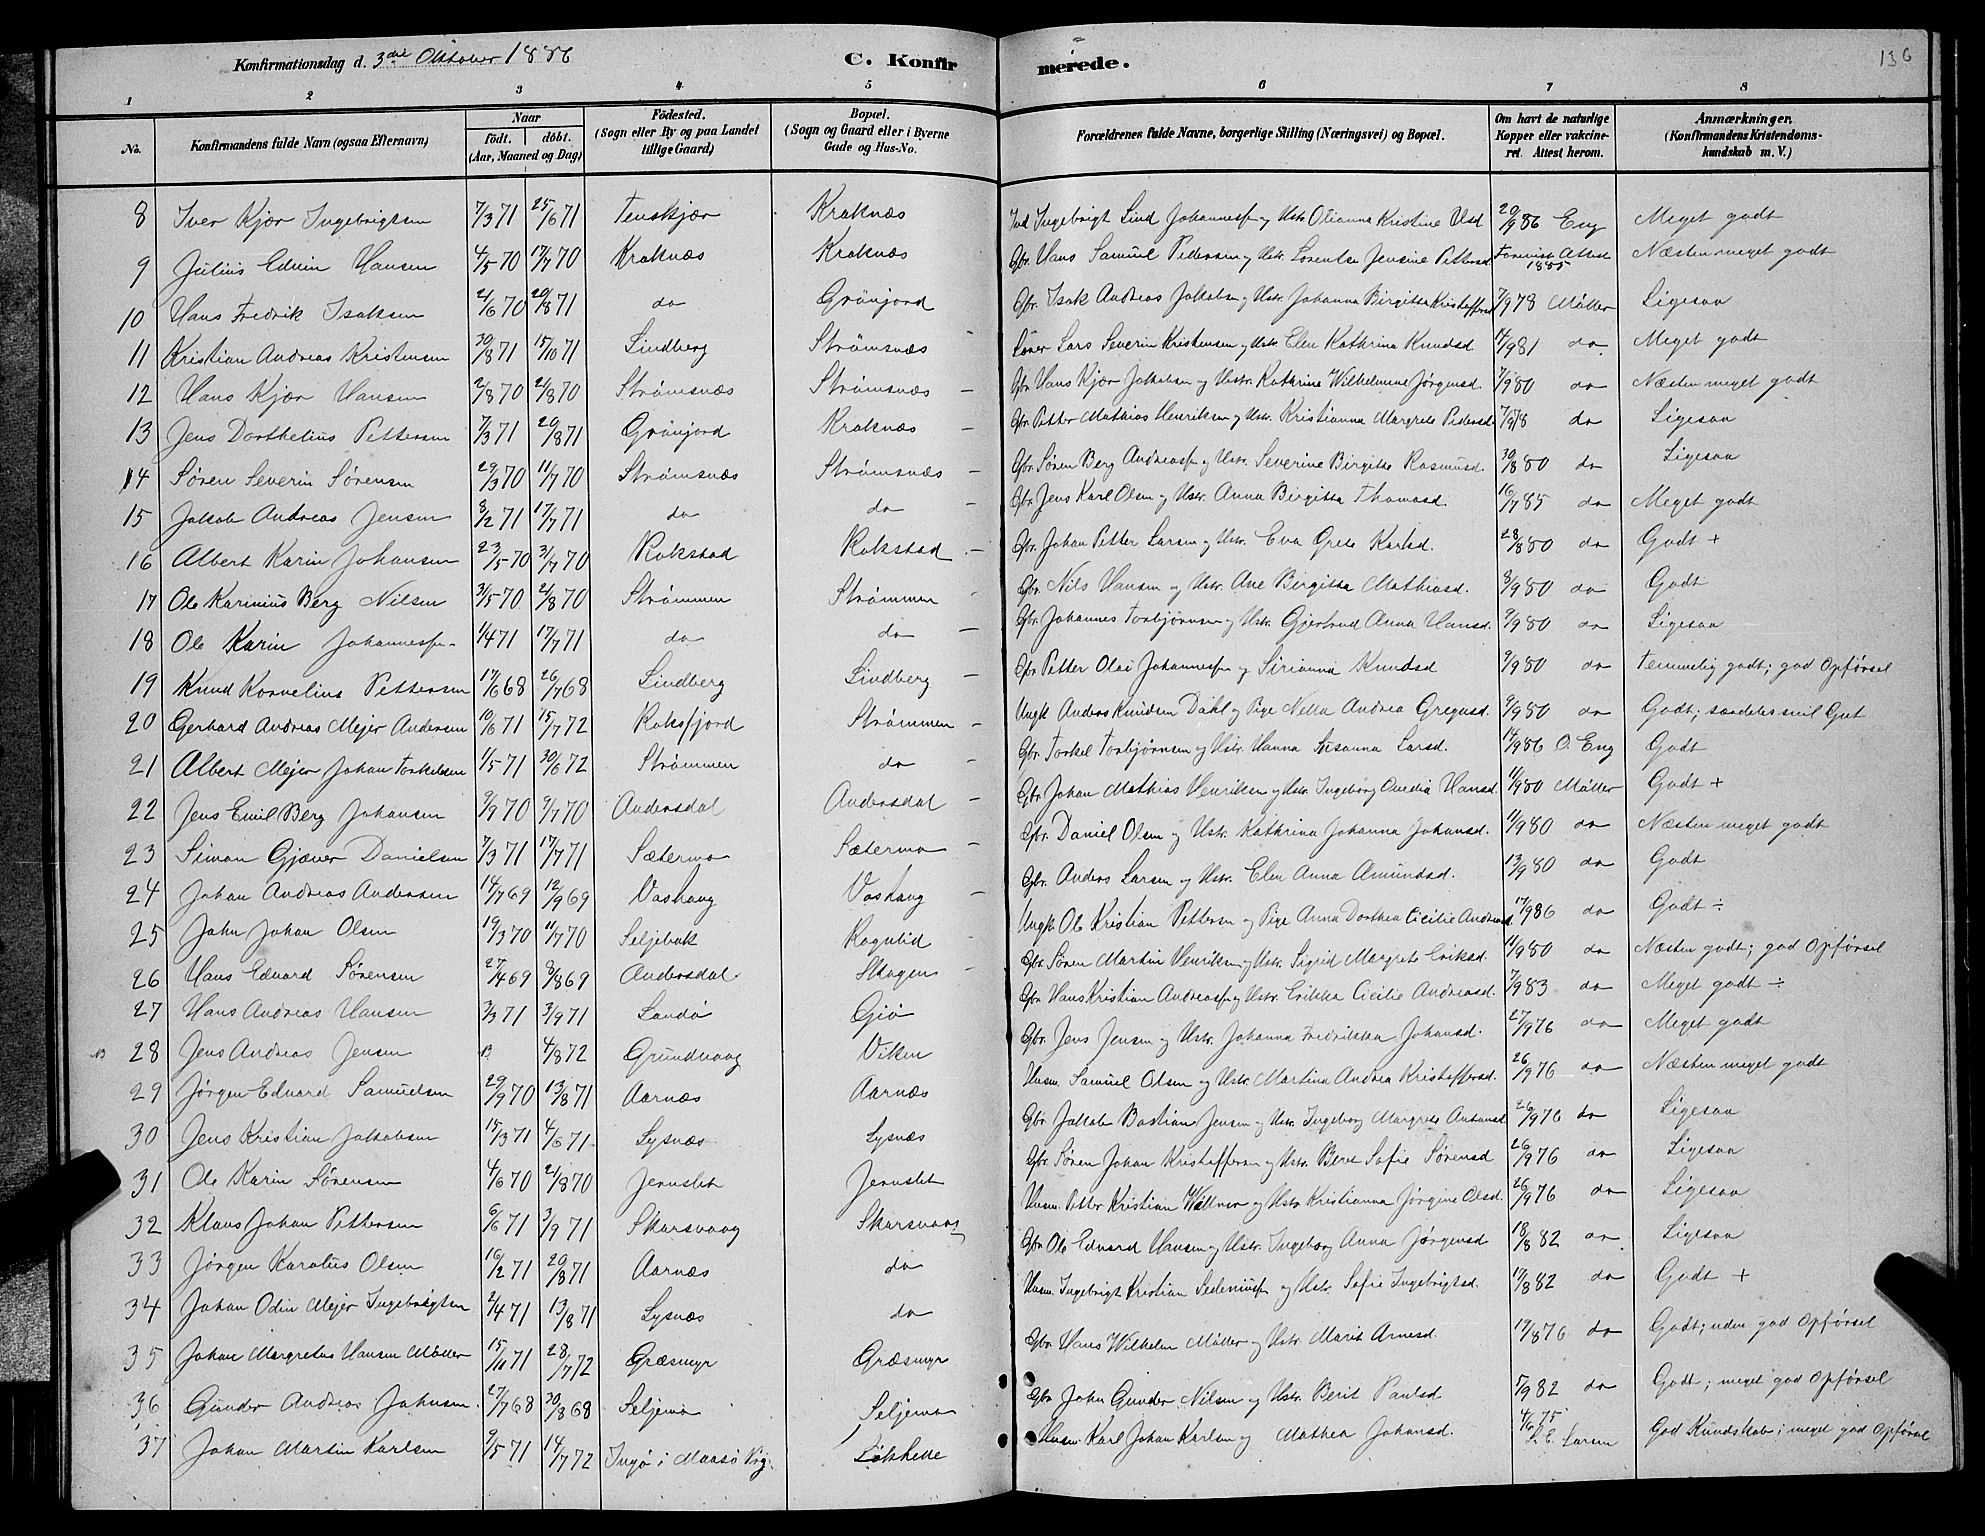 Konfirmationsdag d. 3die Oktober 1886
C. Konfirmerede.
136
1 2 3 4 5 6 7 8
No.
Konfirmandens fulde Navn (ogsaa Efternavn)
Naar
født. døbt.
(Aar, Maaned og Dag)
Fødested.
(Sogn eller By og paa Landet
tillige Gaard)
Bopæl.
(Sogn og Gaard eller i Byerne
Gade og Hus-No.
Forældrenes fulde Navne, borgerlige Stilling (Næringsvei) og Bopæl.
Om havt de naturlige
Kopper eller vakcine-
ret. Attest herom.
Anmærkninger.
(Konfirmandens Kristendoms-
kundskab m. V.)
8 Iver Kjær Ingebrigtsen 7/3 71 25/6 71 Tenskjær Kraknæs Ind Ingebrigt Lind Johannesen og Hstr. Olianna Kristine Olsd 20/9 86 Eng Meget godt
9 Julius Edvin Hansen 4/5 70 17/7 70 Kraknæs Kraknæs Gbr. Hans Samuel Pedersen og Hstr. Lorentse Jensine Pettersd Forevist Attest 1885 Næsten meget godt
10 Hans Fredrik Isaksen 21/6 70 20/8 71 do Grønjord Gbr. Isak Andreas Jakobsen og Hstr. Johanna Birgitta Kristoffersd 7/9 78 Møller Ligesaa
11 Kristian Andreas Kristensen 30/8 71 15/10 71 Lindberg Strømsnæs Lars Severin Kristensen og Hstr. Elen Kathrina Knudsd 14/9 81 do Meget godt
12 Hans Kjær Hansen 2/8 70 21/8 70 Strømsnæs Strømsnæs – Gbr. Hans Kjær Jakobsen og Hstr. Kathrine Wilhelmine Jørgensd. 7/9 80 do Næsten meget godt
13 Jens Dorthelius Pettersen 7/3 71 20/8 71 Grønjord Kraknæs – Gbr. Petter Mathias Henriksen og Hstr. Kristianna Margrete Pedersd. 7/9 78 do Ligesaa
14 Søren Severin Sørensen 29/3 70 11/7 70 Strømsnæs Strømsnæs – Gbr. Søren Berg Andreasen og Hstr. Severine Birgitte Rasmusd. 30/8 80 do Ligesaa
15 Jakob Andreas Jensen 8/2 71 17/7 71 do do – Gbr. Jens Karl Olsen og Hstr. Anna Birgitta Thomasd. 16/7 85 do Meget godt
16 Albert Karin Johansen 23/5 70 3/7 70 Rakstad Rakstad – Gbr. Johan Petter Larsen og Hstr. Eva Grete Karlsd. 28/8 80 do Godt +
17 Ole Karinius Berg Nilsen 31/5 70 21/8 70 Strømmen Strømmen – Gbr. Nils Hansen og Hstr. Ane Birgitta Mathiasd. 8/9 80 do Godt
18 Ole Karin Johannesen 1/4 71 17/7 71 do do – Gbr. Johannes Torbjørnsen og Hstr. Gjertrud Anna Hansd. 9/9 80 do Ligesaa
19 Knud Kornelius Pettersen 17/6 68 26/7 68 Lindberg Lindberg – Gbr. Petter Olai Johannesen og Sirianna Knudsd 9/9 80 do Temmelig godt; god Opførsel
20 Gerhard Andreas Mejer Andersen 10/6 71 15/7 72 Raksfjord Strømmen – Ungk. Anders Knudsen Dahl og Pige Netta Andrea Gregusd. 9/9 80 do Godt; særdeles snil Gut
21 Albert Mejer Johan Torkelsen 1/5 71 30/6 72 Strømmen do – Gbr. Torkel Torbjørnsen og Hstr. Hanna Susanna Larsd. 14/9 86 O. Eng Godt
22 Jens Emil Berg Johansen 9/9 70 9/7 70 Andersdal Andersdal – Gbr. Johan Mathias Henriksen og Hstr. Ingeborg Hansd. 11/9 80 Møller Godt +
23 Simon Gjæver Danielsen 7/3 71 17/7 71 Sætermo Sætermo – Gbr. Daniel Olsen og Hstr. Kathrina Johanna Johansd. 11/9 80 do Næsten meget godt
24 Johan Andreas Andersen 14/7 69 12/9 69 Vashaug Vashaug – Gbr. Anders Larsen og Hstr. Elen Anna Amundsd. 13/9 80 do Godt
25 John Johan Olsen 19/3 70 11/7 70 Seljebak Rognlid – Ungk. Ole Kristian Pettersen og Pige Anna Dorthea Cicilie Andreasd 17/9 86 do Godt ÷
26 Hans Edvard Sørensen 27/4 69 8/8 69 Andersdal Skogen – Gbr. Søren Martin Henriksen og Hstr. Sigrid Margrete Eriksd. 11/9 80 do Næsten godt; god Opførsel
27 Hans Andreas Hansen 3/3 71 3/9 71 Sandø Gjø Gbr. Hans Kristian Andreasen og Hstr. Erikka Cicilie Andreasd. 7/9 83 do Meget godt ÷
28 Jens Andreas Jensen 4/8 72 Grundvaag Viken Gbr. Jens Jensen og Hstr. Johanna Fredrikka Johansd. 27/9 76 do Meget godt
29 Jørgen Edvard Samuelsen 29/9 70 13/8 71 Aarnæs Aarnæs Husm. Samuel Olsen og Hstr. Martina Andrea Kristoffersd. 26/9 76 do Næsten meget godt
30 Jens Kristian Jakobsen 15/3 71 4/6 71 Lysnæs Lysnæs Gbr. Jakob Bastian Jensen og Hstr. Ingeborg Margrete Antonsd 26/9 76 do Ligesaa
31 Ole Karin Sørensen 4/6 70 21/8 70 Jernslet Jernslet Gbr. Søren Johan Kristoffersen og Hstr. Beret Sofie Sørensd 26/9 76 do Ligesaa
32 Klaus Johan Pettersen 6/6 71 3/9 71 Skarsvaag Skarsvaag Husm. Petter Kristian og Hstr. Kristianna Jørgine Olsd. 26/9 76 do Ligesaa
33 Jørgen Karolus Olsen 16/2 71 20/8 71 Aarnæs do Gbr. Ole Edvard Hansen og Hstr. Ingeborg Anna Jørgensd 18/8 82 do. Ligesaa
34 Johan Odin Mejer Ingebrigtsen 2/4 71 13/8 71 Lysnæs do Husm. Ingebrigt Kristian Sedeniusen og Hstr. Sofie Ingebrigtsd. 17/8 82 do Godt +
35 Johan Margretus Hansen Møller 15/10 71 28/7 72 Græsmyr Græsmyr Gbr. Hans Wilhelm Møller og Hstr. Marit Arnesd. 17/8 76 do Godt; uden god Opførsel
36 Gunder Andreas Johnsen 27/7 68 30/8 68 Seljemo Seljemo Gbr. John Gunder Nilsen og Hstr. Berit Paulsd 5/9 82 do Godt; meget god Opførsel
37 Johan Martin Karlsen 9/5 71 14/7 72 Ingø i Maasø Prg. Løkkelle Husm. Karl Johan Karlsen og Mathea Johansd. 4/6 75 L. E. Larsen God Kundskab; meget god Opførsel